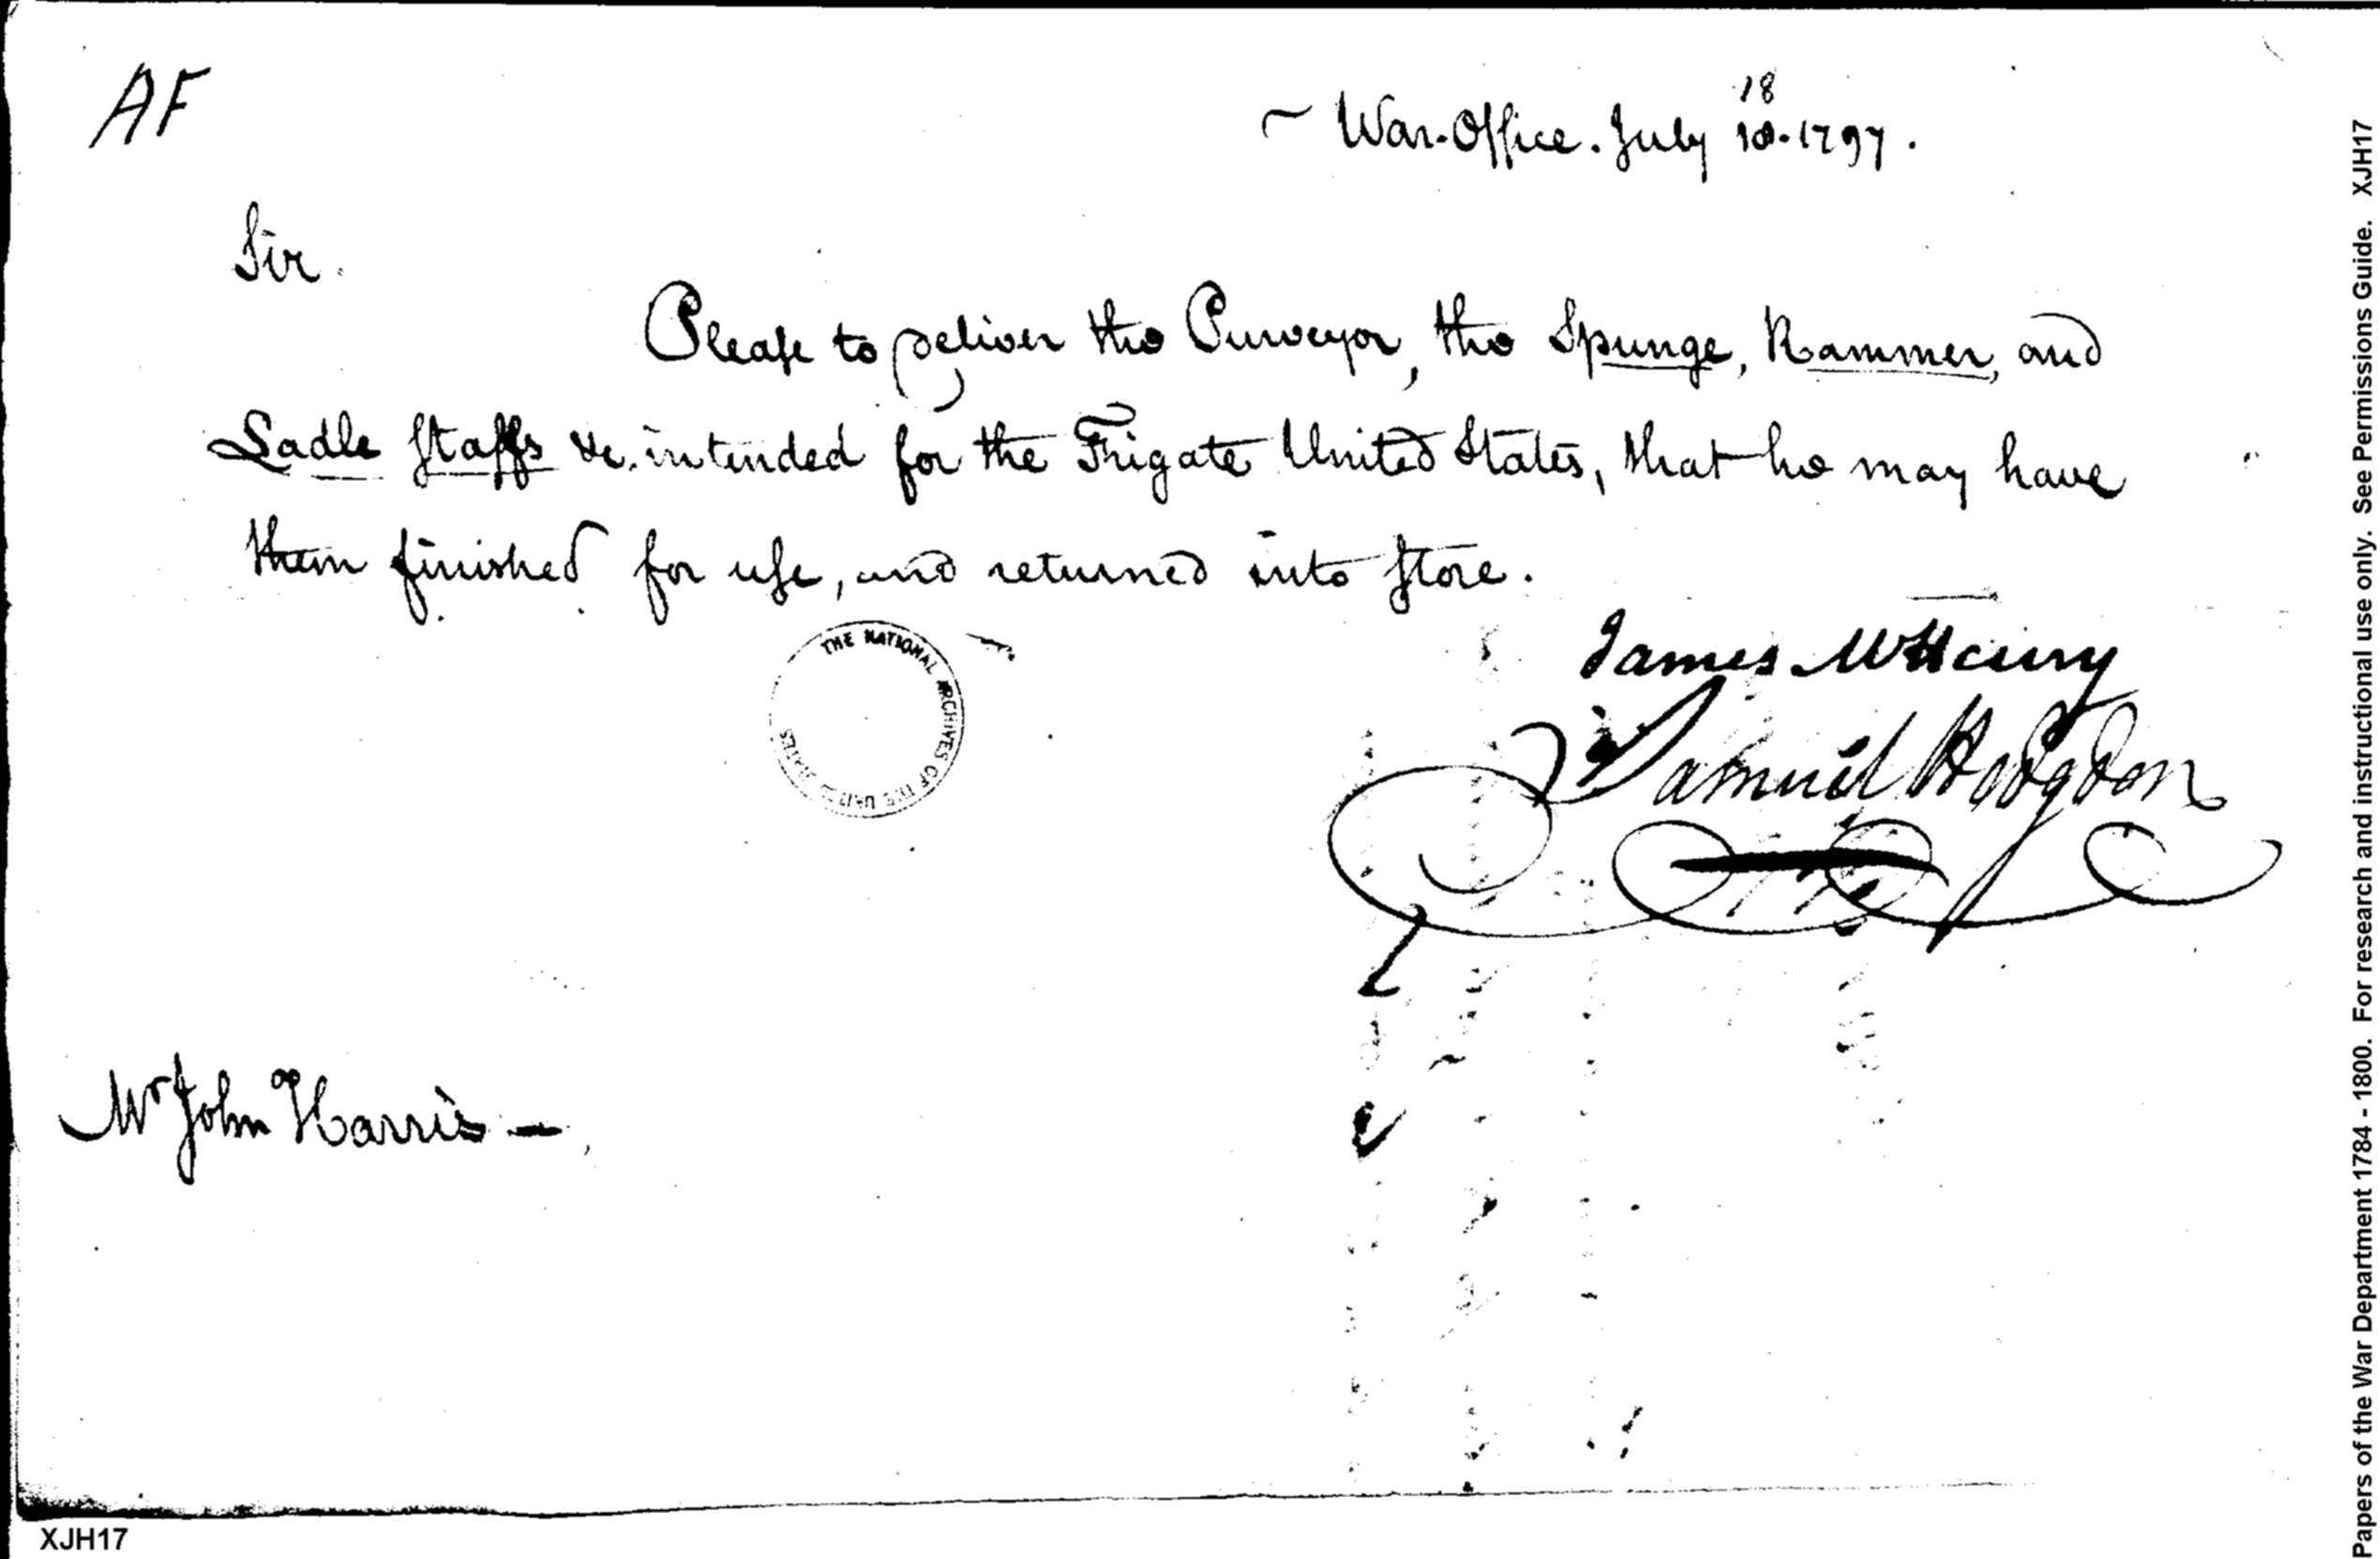 AF
18
War-Office. July 18. 1797.
Sir.
Please to deliver the Purveyor, the Spunge, Rammer, and
Ladle Staffs &c. intended for the Frigate United States, that he may have
them finished for use, and returned into Store.
James McHenry
Samuel Hodgdon
THE NATIONAL ARCHIVES OF THE UNITED STATES
Mr John Harris —
XJH17
Papers of the War Department 1784 - 1800. For research and instructional use only. See Permissions Guide. XJH17